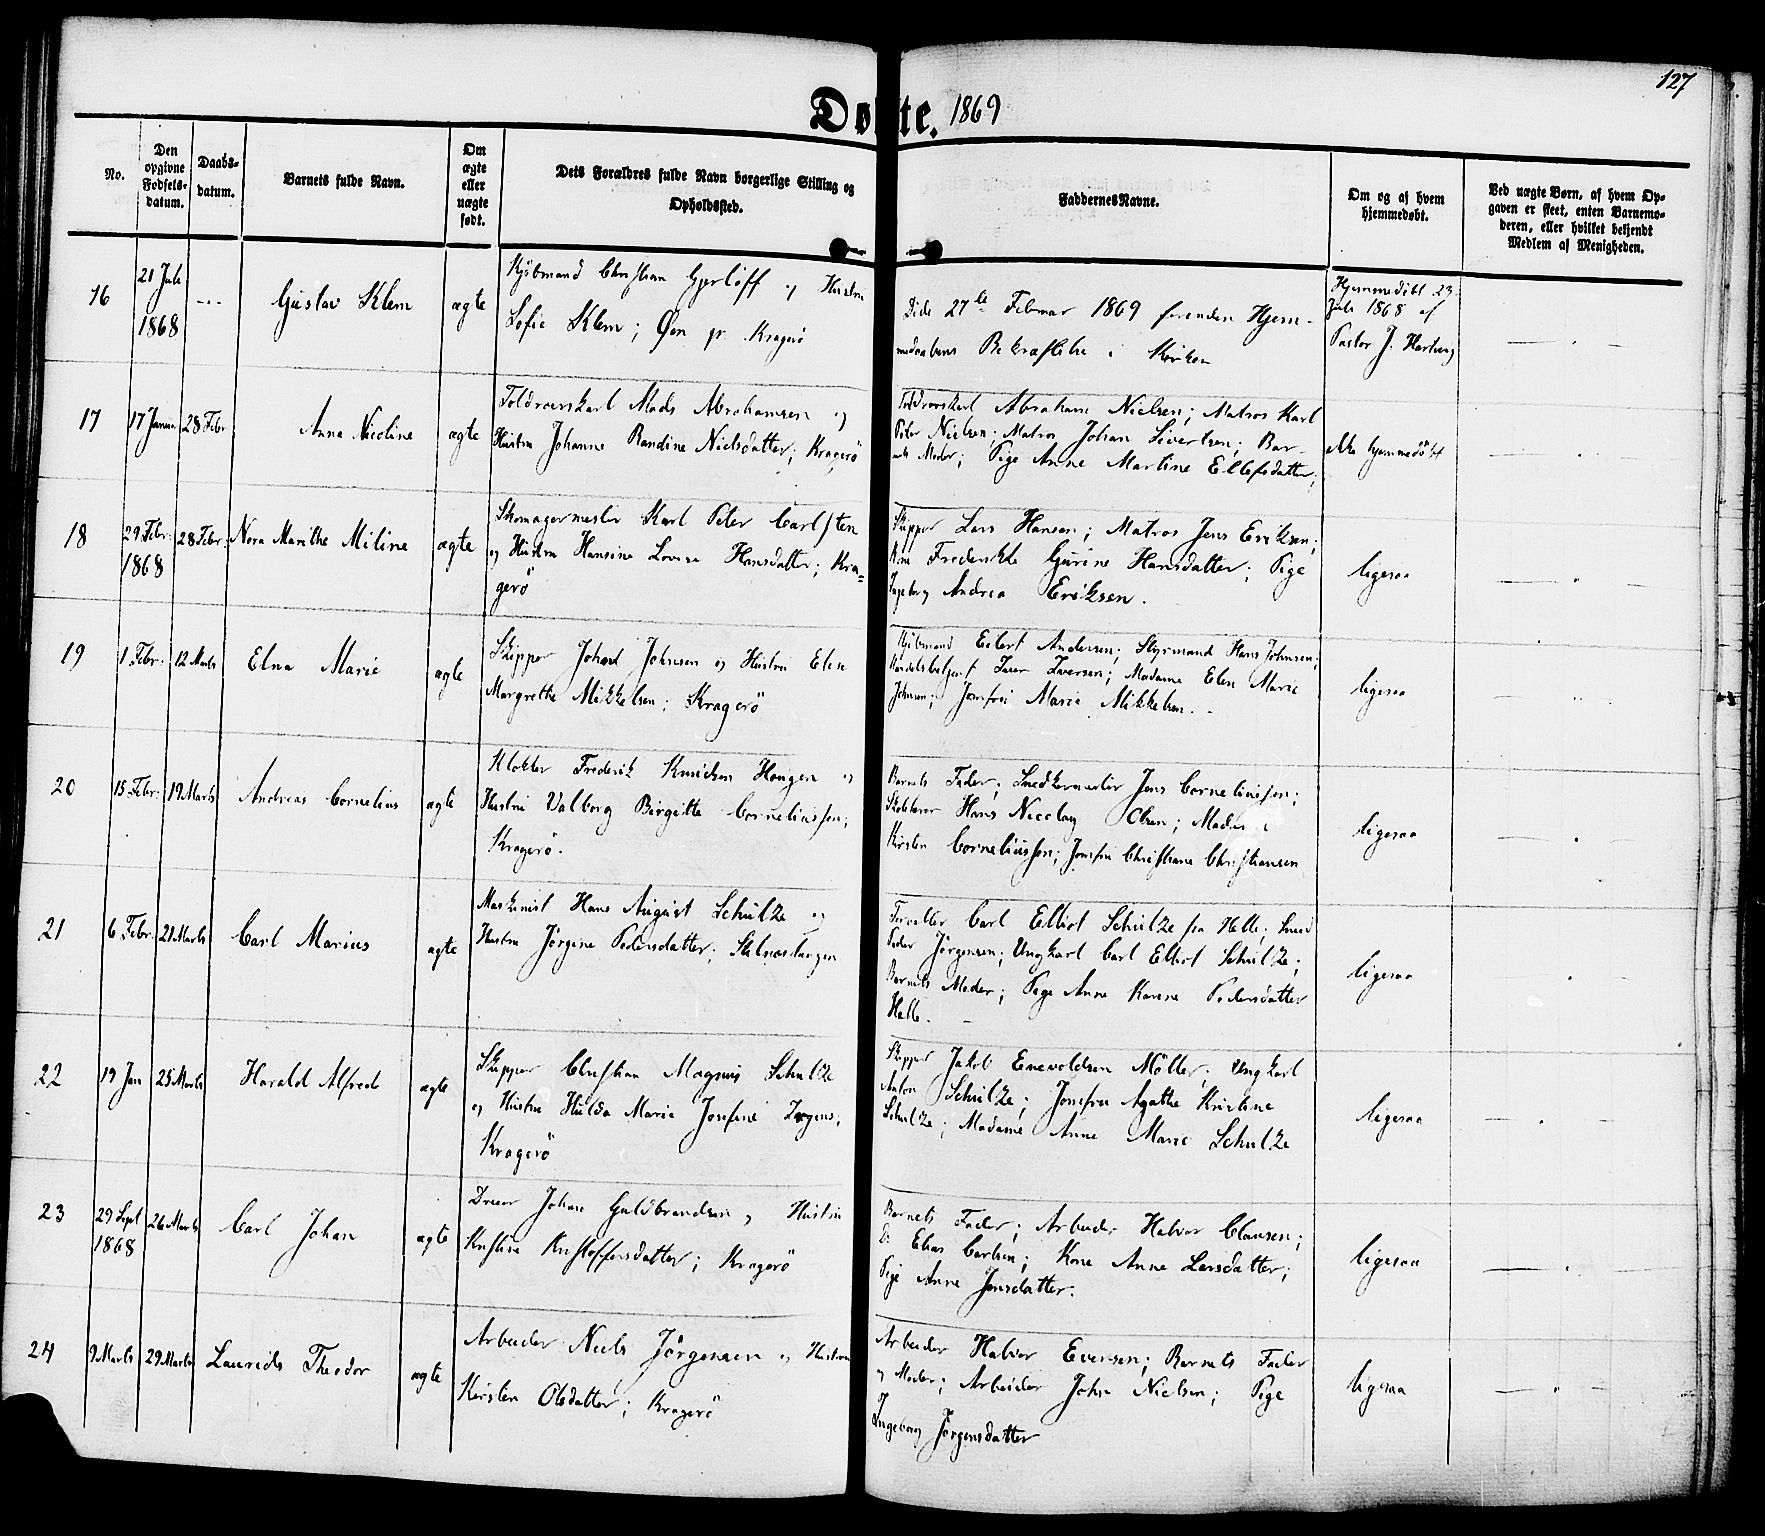 127
Døbte. 1869
No.
Den opgivne Fødsels-datum.
Daabs-datum.
Barnets fulde Navn.
Om ægte eller uægte født.
Dets Forældres fulde Navn borgerlige Stilling og Opholdssted.
Faddernes Navne.
Om og af hvem hjemmedøbt.
Ved uægte Børn, af hvem Opgaven er skeet, enten Barnemoderen, eller hvilket bekjendt Medlem af Menigheden.
16
21 Juli
1868
Gustav Klem
ægte
Kjöbmand Christian Gjerløff og Hustru
Sofie Klem; Øen pr. Kragerö
Døde 27de Februar 1869 forinden Hjem-
medaabens Bekræftelse i Kirken
Hjemmedöbt 23
Juli 1868 af
Pastor J. Hartwig
17
17 Januar
28 Febr.
Anna Nicoline
ægte
Toldroerskarl Mads Abrahamsen og
Hustru Johanne Randine Nielsdatter; Kragerö
Toldroerskarl Abraham Nielsen; Matros Karl
Peter Nielsen; Matros Johan Sivertsen; Bar-
nets Moder; Pige Anne Martine Ellefsdatter;
ikke hjemmedöbt
18
29 Febr.
1868
28 Febr.
Nora Marithe Miline
ægte
Skomagermester Karl Peter Carlsten
og Hustru Hansine Lovise Hansdatter; Kra-
gerö
Skipper Lars Hansen; Matros Jens Eriksen;
Kone Frederikke Gurine Hansdatter; Pige
Ingeborg Andrea Eriksen.
ligesaa
19
1 Febr.
12 Marts
Elna Marie
ægte
Skipper Johan Johnsen og Hustru Elen
Margrethe Mikkelsen; Kragerö
Kjöbmand Eilert Andersen; Styrmand Hans Johnsen;
Handelsbetjent Iver Iversen; Madame Elen Marie
Johnsen; Jomfru Marie Mikkelsen.
ligesaa
20
15 Febr.
19 Marts
Andreas Cornelius
ægte
Klokker Frederik Knudsen Haugen og
Hustru Valborg Birgitte Corneliussen;
Kragerö.
Barnets Fader; Snedkermester Jens Corneliussen;
Hans Nicolay Olsen; Madame
Kirsten Corneliussen; Jomfru Christiane Christiansen
ligesaa
21
6 Febr.
21 Marts
Carl Marius
ægte
Maskinist Hans August Schulze og
Hustru Jörgine Pedersdatter; Stilnæstangen
Forvalter Carl Elliot Schulze fra Helle; Smed
Peder Jörgensen; Ungkarl Carl Elliot Schulze;
Barnets Moder; Pige Anne Karine Pedersdatter
Helle.
ligesaa
22
19 Jan
25 Marts
Harald Alfred
ægte
Skipper Christian Magnus Schulze
og Hustru Hulda Marie Josefine
Kragerö
Skipper Jakob Enevoldsen Möller; Ungkarl
Anton Schulze; Jomfru Agathe Kristine
Schulze; Madame Anne Marie Schulze
ligesaa
23
29 Sept
1868
26 Marts
Carl Johan
ægte
Dreier Johan Guldbrandsen og Hustru
Kristine Kristoffersdatter; Kragerö
Barnets Fader; Arbeider Halvor Clausen;
Do Elias Carlsen; Kone Anne Larsdatter;
Pige Anne Jensdatter.
ligesaa
24
9 Marts
29 Marts
Laurids Theodor
ægte
Arbeider Niels Jörgensen og Hustru
Kirsten Olsdatter; Kragerö
Arbeider Halvor Eversen; Barnets Fader
og Moder; Arbeider John Nielsen; Pige
Ingeborg Jörgensdatter
ligesaa